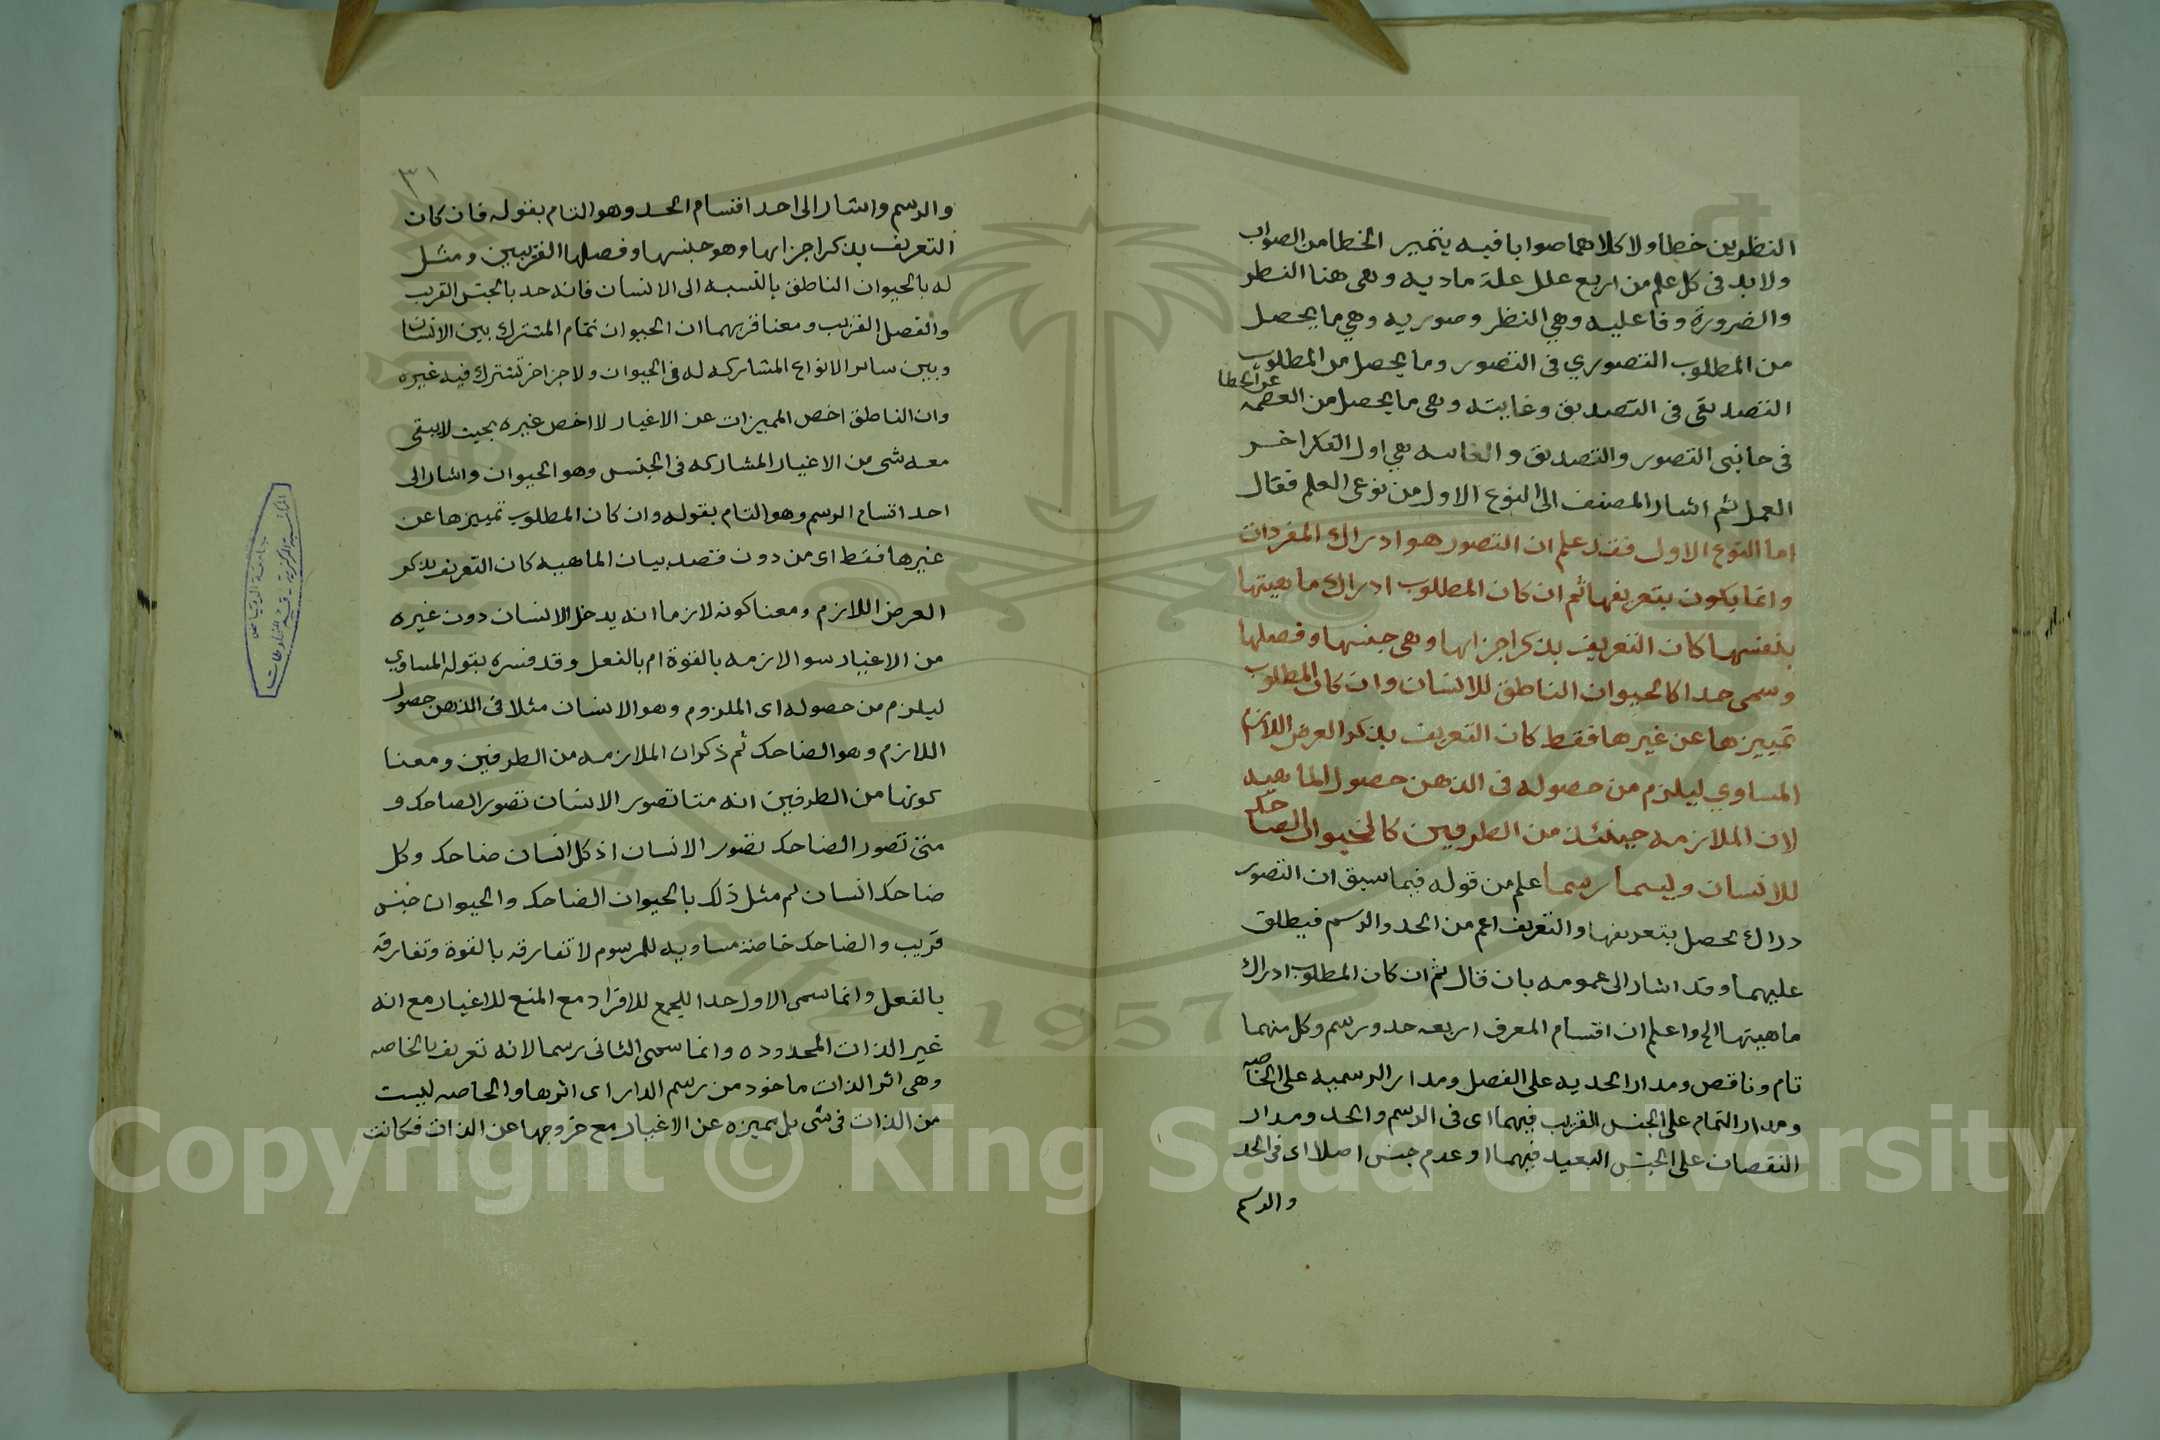 النظرين خطا ولا كلاهما صوابا فبه يتميز الخطا من الصواب
ولا بد فى كل علم من اربع علل علة ماديه وهى هنا النظر
والضرورة وفاعليه وهي النظر وصوريه وهي ما يحصل
من المطلوب التصوري فى التصور وما يحصل من المطلوب
التصديقى فى التصديق وغايته وهى ما يحصل من العصمه عن الخطا
فى جانبى التصور والتصديق والغايه هي اول الفكر اخر
العمل ثم اشار المصنف الى النوع الاول من نوعى العلم فقال
اما النوع الاول فقد علم ان التصور هو ادراك المفردات
وانما يكون بتعريفها ثم ان كان المطلوب ادراك ماهيتها
بنفسها كان التعريف بذكر اجزايها وهى جنسها وفصلها
وسمى حدا كالحيوان الناطق للانسان وان كان المطلوب
تمييزها عن غيرها فقط كان التعريف بذكر العرض اللازم
المساوي ليلزم من حصوله فى الذهن حصول الماهيه
لان الملازمه حينئذ من الطرفين كالحيوان الضاحك
للانسان ويسما رسما علم من قوله فيما سبق ان التصور
دراك يحصل بتعريفها والتعريف اعم من الحد والرسم فيطلق
عليهما وقد اشار الى عمومه بان قال ثم ان كان المطلوب ادراك
ماهيتها الخ واعلم ان اقسام المعرف اربعه حد ورسم وكل منهما
تام وناقص ومدار الحديه على الفصل ومدار الرسميه على الخاصه
ومدار التمام على الجنس القريب فيهما اى فى الرسم والحد ومدار
النقصان على الجنس البعيد فيهما او عدم جنس اصلا اى فى الحد
والرسم
٣١
والرسم واشار الى احد اقسام الحد وهو التام بقوله فان كان
التعريف بذكر اجزايها وهو جنسها وفصلها القريبين ومثل
له بالحيوان الناطق بالنسبه الى الانسان فانه حد بالجنس القريب
والفصل القريب ومعنا قربهما ان الحيوان تمام المشترك بين الانسان
وبين ساير الانواع المشاركه له فى الحيوان ولا جز اخر تشترك فيه غيره
وان الناطق اخص المميزات عن الاغيار لا اخص غيره بحيث لا يبقى
معه شى من الاغيار المشاركه فى الجنس وهو الحيوان واشار الى
احد اقسام الرسم وهو التام بقوله وان كان المطلوب تمييزها عن
غيرها فقط اى من دون قصد بيان الماهيه كان التعريف بذكر
العرض اللازم ومعنا كونه لازما انه يدخل الانسان دون غيره
من الاغيار سوا لازمه بالقوة ام بالفعل وقد فسره بقوله المساوي
ليلزم من حصوله اى الملزوم وهو الانسان مثلا فى الذهن حصول
اللازم وهو الضاحك ثم ذكر ان الملازمه من الطرفين ومعنا
كونها من الطرفين انه متا تصور الانسان تصور الضاحك و
متى تصور الضاحك تصور الانسان اذ كل انسان ضاحك وكل
ضاحك انسان ثم مثل ذلك بالحيوان الضاحك والحيوان جنس
قريب والضاحك خاصة مساويه للمرسوم لا تفارقه بالقوة وتفارقه
بالفعل وانما سمى الاول حدا للجمع للافراد مع المنع للاغيار مع انه
غير الذات المحدوده وانما سمى الثانى رسما لانه تعريف بالخاصه
وهى اثر الذات ماخوذ من رسم الدار اى اثرها والخاصه ليست
من الذات فى شى بل مميزه عن الاغيار مع خروجها عن الذات فكانت
جامعة الرياض
المكتبة المركزية - قسم المخطوطات
1957
Copyright © King Saud University